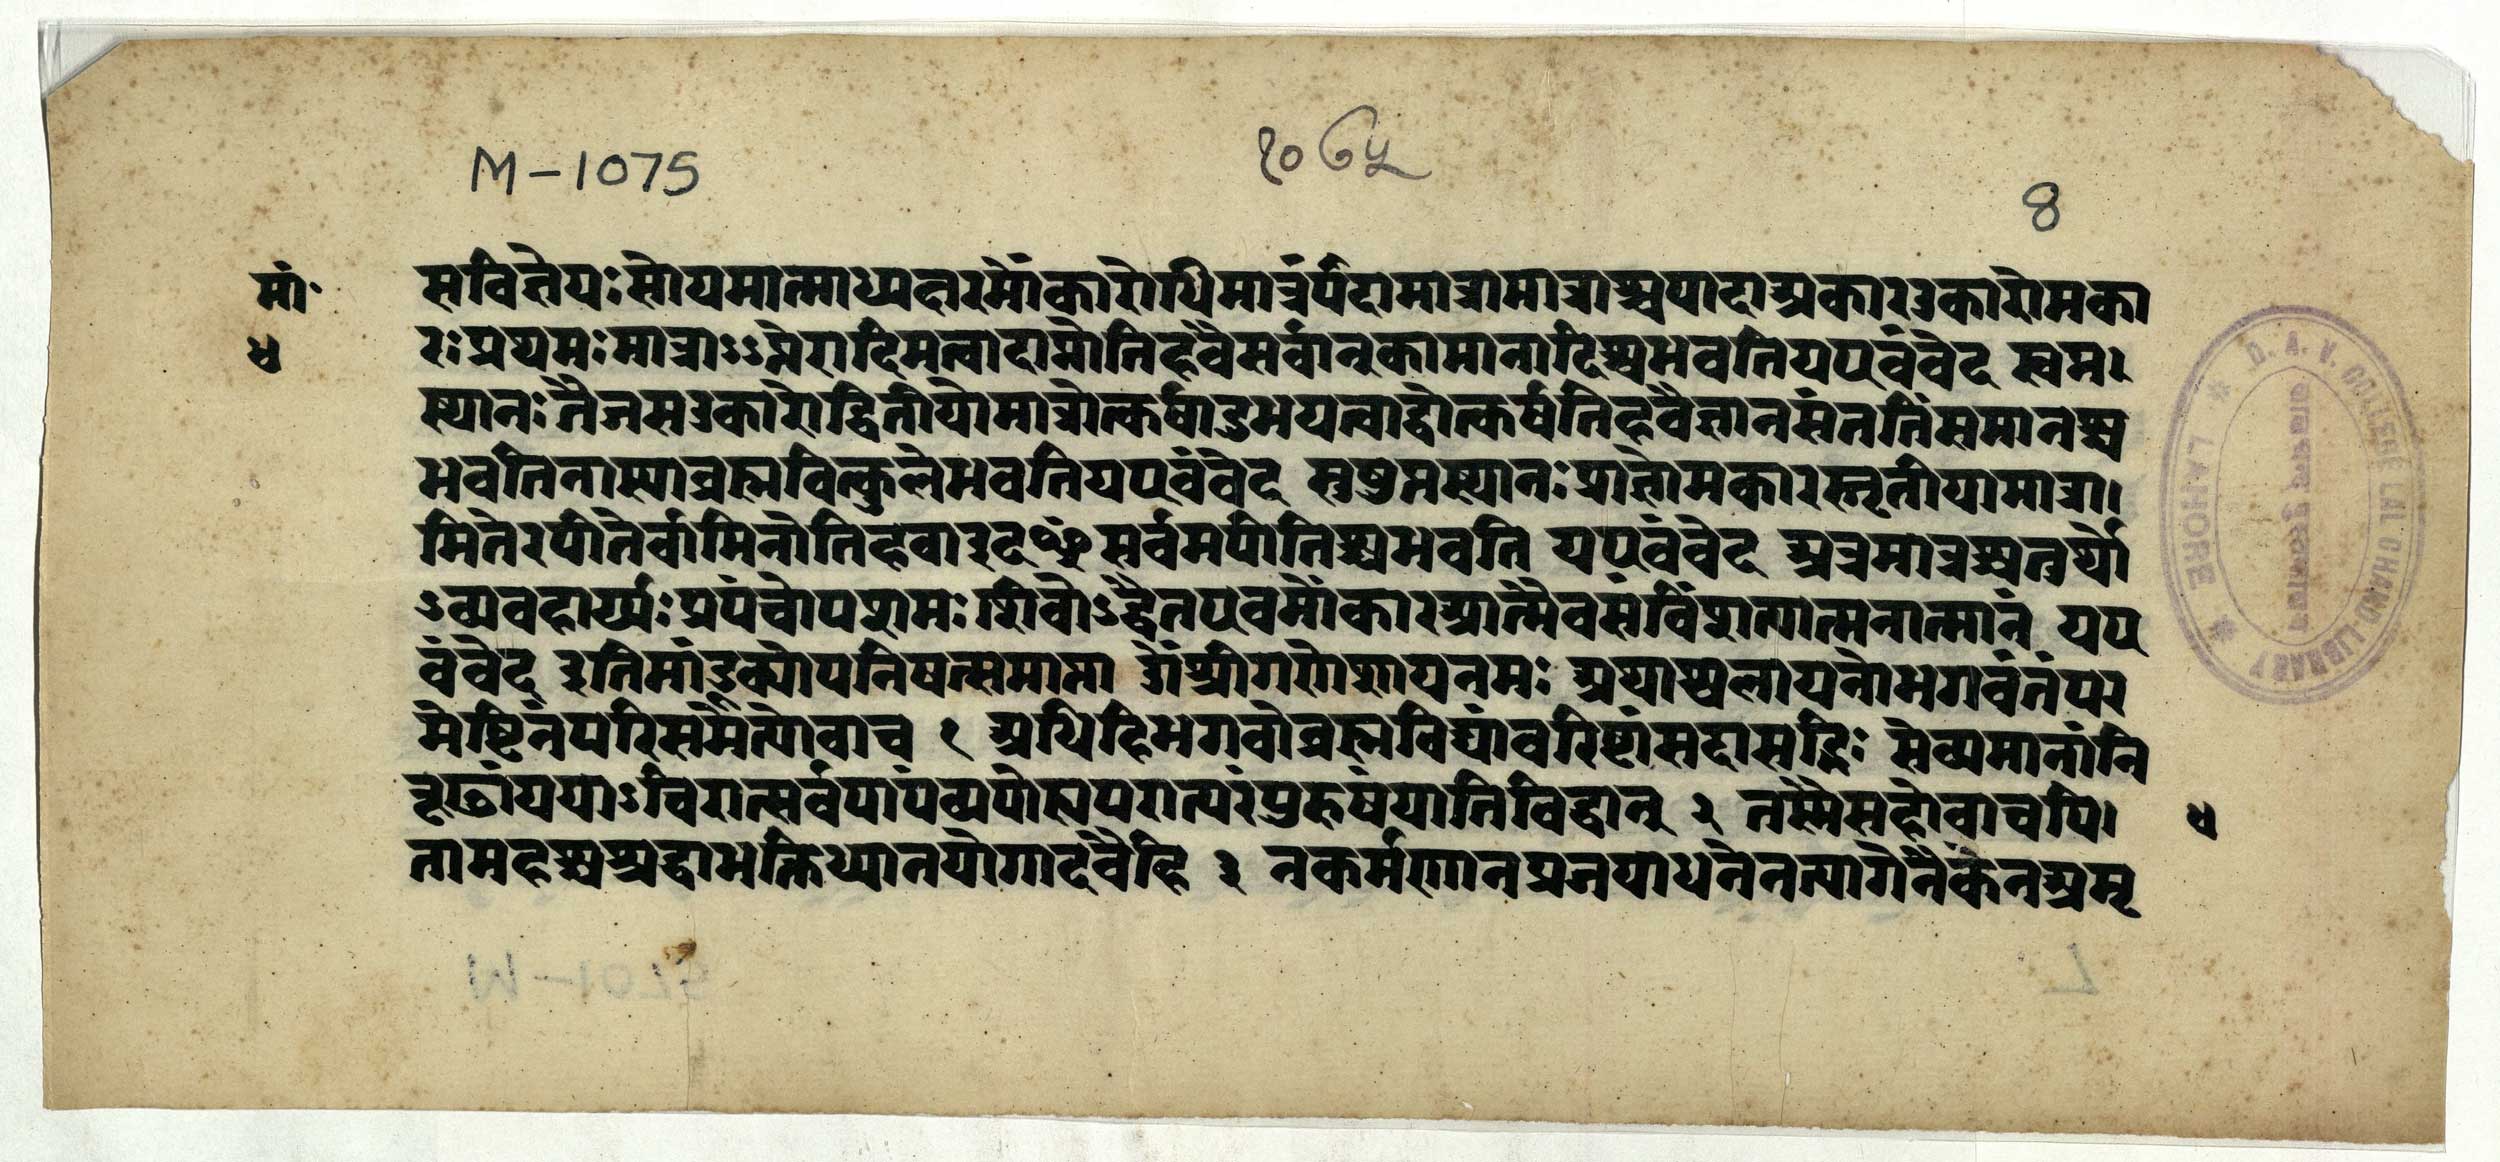 M-1075
१०७५
8
मां॰
४
सविज्ञेयः सोयमात्माध्यक्षरमोंकारोधिमात्रंपंदामात्रामात्राश्चपादाअकारउकारोमका
रः प्रथमः मात्राऽऽप्तेरादिमत्वादाप्नोतिहवैसर्वान्कामानादिश्चभवतियएवंवेद स्वप्न।
स्थानः तैजसउकारोद्वितीयोमात्रोत्कर्षाडुभयत्वाद्वोत्कर्षतिहवैज्ञानसंततिंसमानश्च
भवतिनास्याब्रह्मवित्कुलेभवतियएवंवेद् सुषुप्तस्थानः प्राज्ञोमकारस्तृतीयामात्रा।
मितेरपीतेर्वामिनोतिहवाइदꣳसर्वमपीतिश्चभवति यएवंवेद अत्रमात्रश्चतर्थो
ऽव्यवहार्य्यः प्रपंचोपशमः शिवोऽद्वैतएवमोंकारआत्मैवसंविंशत्यात्मनात्मानं यए
वंवेद् इतिमांडूक्योपनिषत्समाप्ता ॐश्रीगणेशायनमः अथाश्वलायनोभगवंतंपर
मेष्टिनंपरिसमेत्योवाच १ अधिहिभगवोब्रह्मविद्यांवरिष्टांसदासद्भिः सेव्यमानांनि
गूढांययाऽचिरात्सर्वपापंव्यपोह्यपरात्परंपुरुषंयातिविद्वान् २ तस्मैसहोवाचपि।
तामहश्चश्रद्धाभक्तिध्यानयोगादवैहि ३ नकर्मणानप्रजयाधनेनत्यागेनैकेनअमृ
४
D. A. V. COLLEGE LAL CHAND LIBRARY
LAHORE